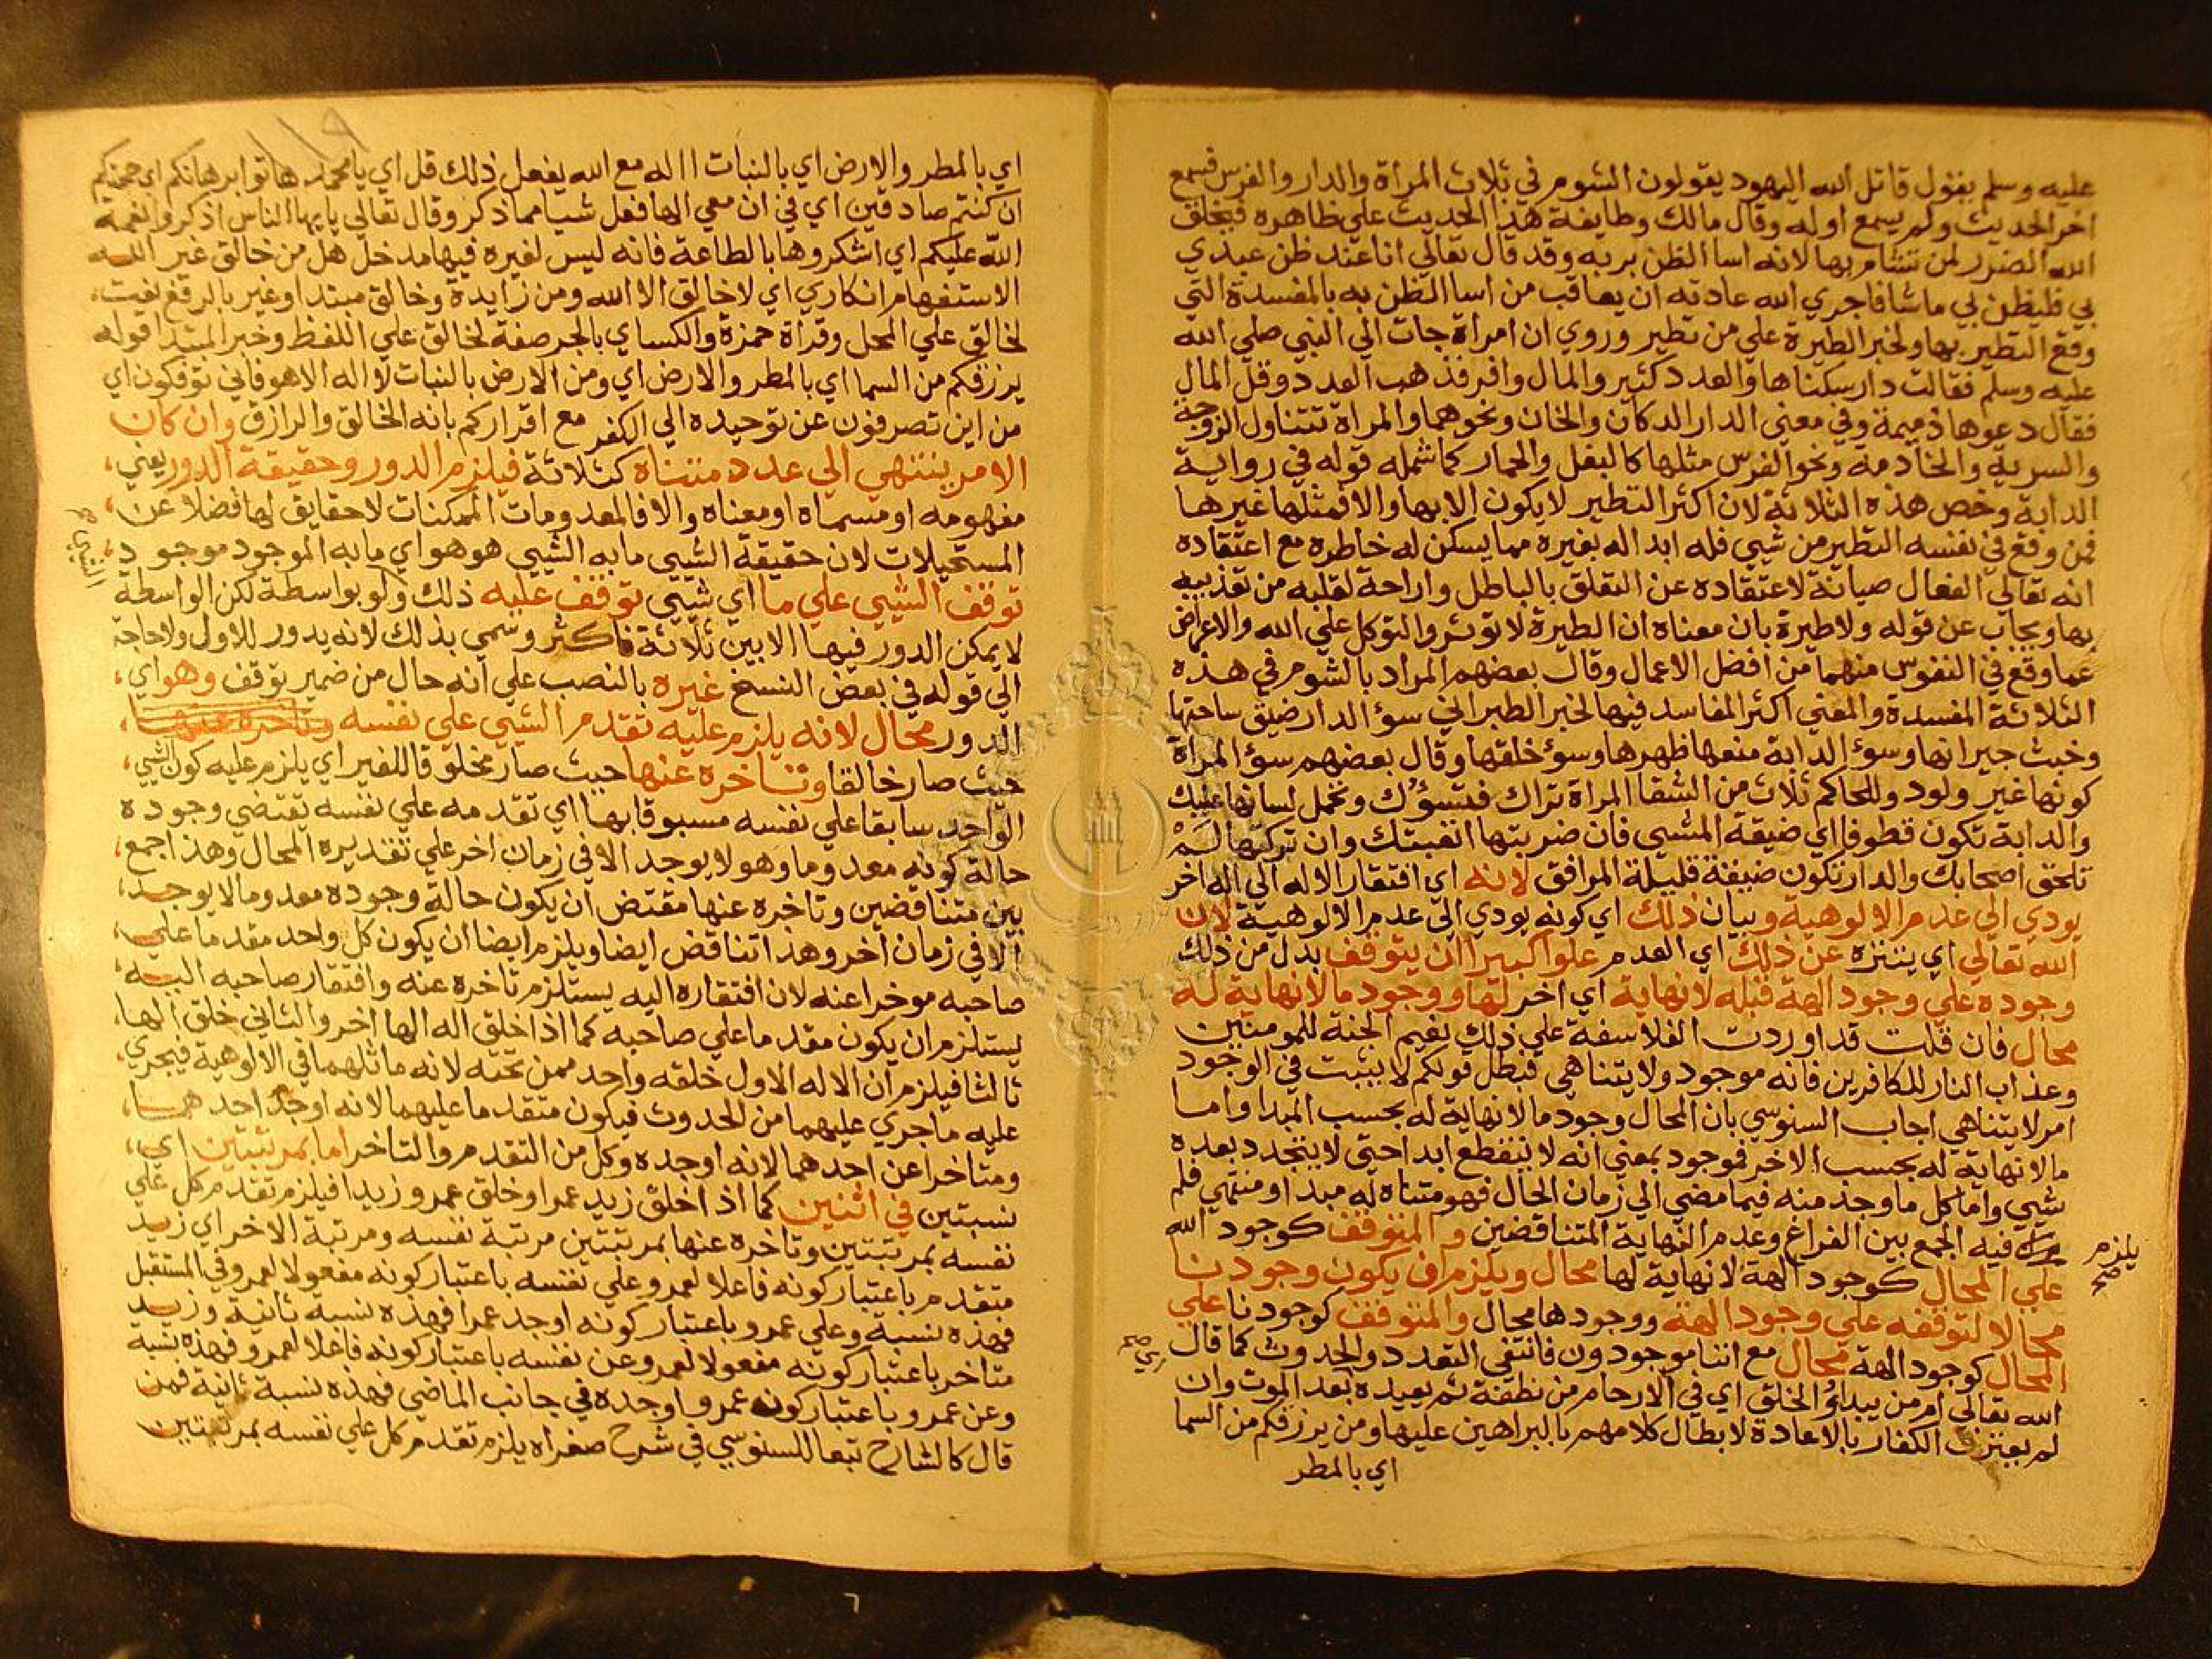 عليه وسلم يقول قاتل الله اليهود يقولون الشوم في ثلاث المرأة والدار والفرس فسمع
اخر الحديث ولم يسمع اوله وقال مالك وطايفة هذا الحديث علي ظاهره فيخلق
الله الضرر لمن تشام بها لانه اسا الظن بربه وقد قال تعالي انا عند ظن عبدي
بي فليظن بي ماشا فاجري الله عادته ان يعاقب من اسا الظن به بالمفسدة التي
وقع التطير بها ولخبر الطيرة علي من تطير وروي ان امراة جات الي النبي صلي الله
عليه وسلم فقالت دار سكناها والعدد كثير والمال وافر فذهب العدد وقل المال
فقال دعوها ذميمة وفي معني الدار الدكان والخان ونحوهما والمراة تتناول الزوجة
والسرية والخادمة ونحو الفرس مثلها كالبغل والحمار كما شمله قوله في رواية
الدابة وخص هذه الثلاثة لان اكثر التطير لا يكون الا بها والا فمثلها غيرها
فمن وقع في نفسه التطير من شيي فله ابداله بغيره مما يسكن له خاطره مع اعتقاده
انه تعالي الفعال صيانة لاعتقاده عن التعلق بالباطل واراحة لقلبه من تعذيبه
بها ويجاب عن قوله ولا طيرة بان معناه ان الطيرة لا توثر والتوكل علي الله والاعراض
عما وقع في النفوس منهما من افضل الاعمال وقال بعضهم المراد بالشوم في هذه
الثلاثة المفسدة والمعني اكثر المفاسد فيها لخبر الطبراني سوء الدار ضيق ساحتها
وخبث جيرانها وسوء الدابة منعها ظهرها وسوء خلقها وقال بعضهم سوء المراة
كونها غير ولود وللحاكم ثلاث من الشقا المراة تراك فتسؤك وتحمل لسانها عليك
والدابة تكون قطوفا اي ضيقة المشي فان ضربتها اتعبتك وان تركتها لم
تلحق اصحابك والدار تكون ضيقة قليلة المرافق لانه اي افتقار الاله الي اله اخر
يودي الي عدم الالوهية وبيان ذلك اي كونه يودي الي عدم الالوهية لان
الله تعالي اي يتنزه عن ذلك اي العدم علوا كبيرا ان يتوقف بدل من ذلك
وجوده علي وجود الهة قبله لا نهاية اي اخر لها ووجود ما لا نهاية له
محال فان قلت قد اوردت الفلاسفة علي ذلك نعيم الجنة للمومنين
وعذاب النار للكافرين فانه موجود ولا يتناهي فبطل قولكم لا يثبت في الوجود
امر لا يتناهي اجاب السنوسي بان المحال وجود ما لا نهاية له بحسب المبدا واما
ما لا نهاية له بحسب الاخر فموجود بمعني انه لا ينقطع ابدا حتي لا يتجدد بعده
شيي واما كل ما وجد منه فيما مضي الي زمان الحال فهو متناه له مبدا ومنتهي فلم
يلزم صح
فيه الجمع بين الفراغ وعدم النهاية المتناقضين والمتوقف كوجود الله
علي المحال كوجود الهة لا نهاية لها محال ويلزم ان يكون وجودنا
محالا لتوقفه علي وجود الهة ووجودها محال والمتوقف كوجودنا علي
المحال كوجود الهة محال مع اننا موجودون فانتفي التعدد والحدوث كما قال
الله تعالي ام من يبدؤ الخلق اي في الارحام من نطفة ثم يعيده بعد الموت وان
لم يعترف الكفار بالاعادة لابطال كلامهم بالبراهين عليها ومن يرزقكم من السما
اي بالمطر
اي بالمطر والارض اي بالنبات االه مع الله يفعل ذلك قل اي يا محمد هاتوا برهانكم اي حجتكم
ان كنتم صادقين اي في ان معي الها فعل شيا مما ذكر وقال تعالي يا يها الناس اذكروا نعمة
الله عليكم اي اشكروها بالطاعة فانه ليس لغيره فيها مدخل هل من خالق غير الله
الاستفهام انكاري اي لا خالق الا الله ومن زايدة وخالق مبتدا وغير بالرفع نعت
لخالق علي المحل وقراة حمزة والكساي بالجر صفة لخالق علي اللفظ وخبر المبتدا قوله
يرزقكم من السما اي بالمطر والارض اي ومن الارض بالنبات لا اله الا هو فاني توفكون اي
من اين تصرفون عن توحيده الي الكفر مع اقراركم بانه الخالق والرازق وان كان
الامر ينتهي الي عدد متناه كثلاثة فيلزم الدور وحقيقة الدور يعني
مفهومه او مسماه او معناه والا فالمعدومات الممكنات لا حقايق لها فضلا عن
المستحيلات لان حقيقة الشيي ما به الشيي هو هو اي ما به الموجود موجود
توقف الشيي علي ما اي شيي توقف عليه ذلك ولو بواسطة لكن الواسطة
لا يمكن الدور فيها الا بين ثلاثة فاكثر وسمي بذلك لانه يدور للاول ولا حاجة
الي قوله في بعض النسخ غيره بالنصب علي انه حال من ضمير توقف وهو اي
الدور محال لانه يلزم عليه تقدم الشيي علي نفسه
حيث صار خالقا وتاخره عنها حيث صار مخلوقا للغير اي يلزم عليه كون الشيي
الواحد سابقا علي نفسه مسبوقا بها اي تقدمه علي نفسه تقتضي وجوده
حالة كونه معدوما وهو لا يوجد الا في زمان اخر علي تقديره المحال وهذا جمع
بين متناقضين وتاخره عنها مقتض ان يكون حالة وجوده معدوما لا يوجد
الا في زمان اخر وهذا تناقض ايضا ويلزم ايضا ان يكون كل واحد مقدما علي
صاحبه موخرا عنه لان افتقاره اليه يستلزم تاخره عنه وافتقار صاحبه اليه
يستلزم ان يكون مقدما علي صاحبه كما اذا خلق اله الها اخر والثاني خلق الها
ثالثا فيلزم ان الاله الاول خلقه واحد ممن تحته لانه ماثلهما في الالوهية فيجري
عليه ما جري عليهما من الحدوث فيكون متقدما عليهما لانه اوجد احدهما
ومتاخرا عن احدهما لانه اوجده وكل من التقدم والتاخر اما بمرتبتين اي
نسبتين في اثنين كما اذا خلق زيد عمرا وخلق عمرو زيدا فيلزم تقدم كل علي
نفسه بمرتبتين وتاخره عنها بمرتبتين مرتبة نفسه ومرتبة الاخر اي زيد
متقدم باعتبار كونه فاعلا لعمرو علي نفسه باعتبار كونه مفعولا لعمرو وفي المستقبل
فهذه نسبة وعلي عمرو باعتبار كونه اوجد عمرا فهذه نسبة ثانية وزيد
متاخر باعتبار كونه مفعولا لعمرو عن نفسه باعتبار كونه فاعلا لعمرو فهذه نسبة
وعن عمرو باعتبار كون عمرو اوجده في جانب الماضي فهذه نسبة ثانية فمن
قال كالشارح تبعا للسنوسي في شرح صغراه يلزم تقدم كل علي نفسه بمرتبتين